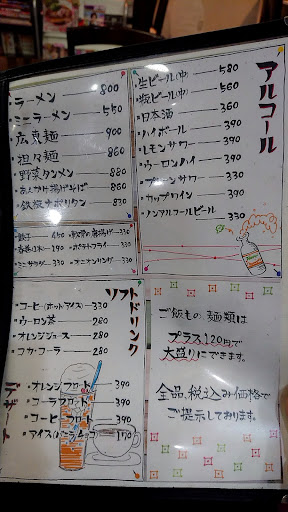 ・ラーメン 800
・ミニラーメン 550
・広東麺 900
・担々麺 860
・野菜タンメン 880
・あんかけ揚げそば 860
・鉄板ナポリタン 830
・餃子 450
・春巻(2本) 390
・ミニサラダ 330
・若鶏の唐揚げ 330
・ポテトフライ 330
・オニオンリング 330
アルコール
・生ビール(中) 580
・瓶ビール(中) 560
・日本酒 360
・ハイボール 390
・レモンサワー 390
・ウーロンハイ 390
・プレーンサワー 330
・カップワイン 390
・ノンアルコールビール 330
ソフトドリンク
・コーヒー(ホット・アイス) 330
・ウーロン茶 280
・オレンジジュース 280
・コカ・コーラ 280
デザート
・オレンジフロート 390
・コーラフロート 390
・コーヒーフロート 390
・アイス
ご飯もの、麺類は
プラス120円で
大盛りにできます。
全品、税込み価格で
ご提示しております。